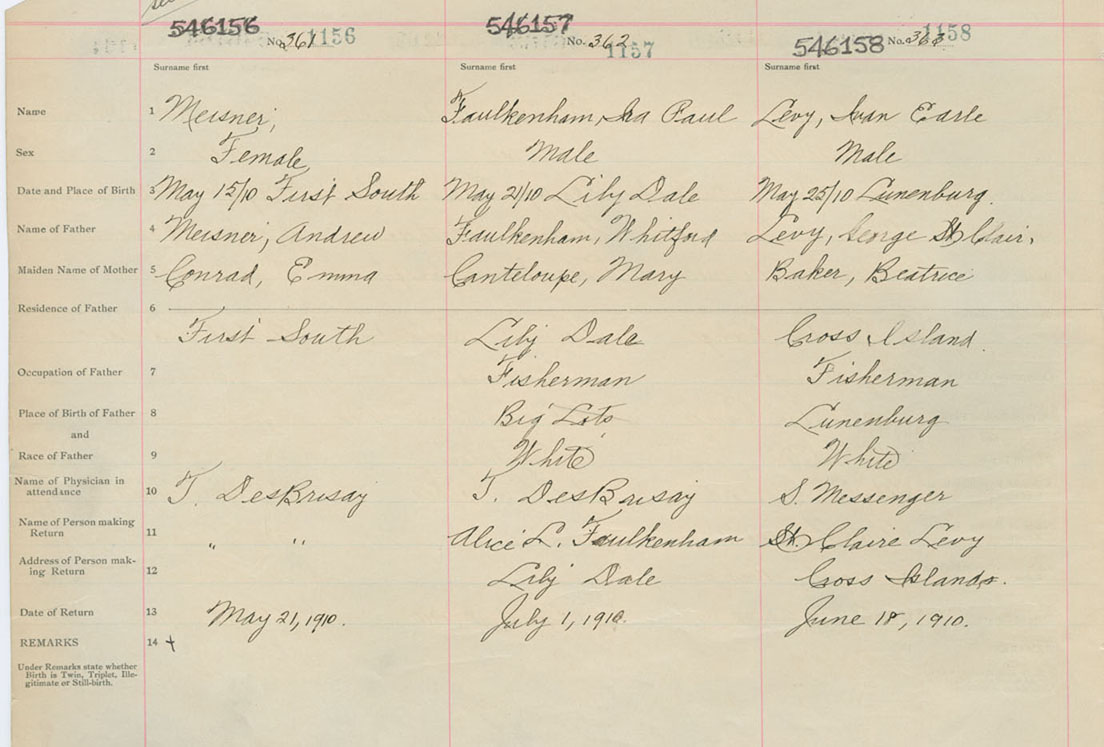 546156 No. 361 1156 546157 No. 362 1157 546158 No. 363 1158
Surname first Surname first Surname first
Name 1 Meisner, Faulkenham, Ira Paul Levy, Ivan Earle
Sex 2 Female Male Male
Date and Place of Birth 3 May 15/10 First South May 21/10 Lily Dale May 25/10 Lunenburg.
Name of Father 4 Meisner, Andrew Faulkenham, Whitford Levy, George St. Clair.
Maiden Name of Mother 5 Conrad, Emma Canteloupe, Mary Baker, Beatrice
Residence of Father 6
First South Lily Dale Cross Island.
Occupation of Father 7 Fisherman Fisherman
Place of Birth of Father 8 Big Lots Lunenburg
and
Race of Father 9 White White
Name of Physician in
attendance 10 T. DesBrisay T. DesBrisay S. Messenger
Name of Person making
Return 11 " " Alice L. Faulkenham St. Claire Levy
Address of Person mak-
ing Return 12 Lily Dale Cross Islands.
Date of Return 13 May 21, 1910. July 1, 1910. June 18, 1910.
REMARKS 14 +
Under Remarks state whether
Birth is Twin, Triplet, Ille-
gitimate or Still-birth.